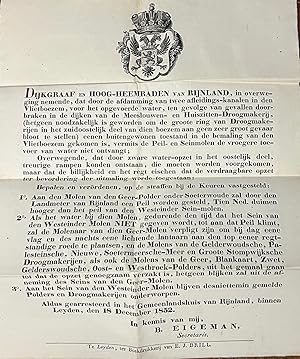 DIJKGRAAF EN HOOG-HEEMRADEN VAN RIJNLAND, in overwe-
ging nemende, dat door de afdamming van twee afleidings-kanalen in den
Vlietboezem, voor het opgevoerde water, ten gevolge van gevallen door-
braken in de dijken van de Meeslouwen- en Huiszitten-Droogmakerij,
(hetgeen noodzakelijk is geworden om de groote ring van Droogmake-
rijen in het zuidoostelijk deel van dien boezem aan geen zeer groot gevaar
bloot te stellen) eenen buitengewonen toestand in de bemaling van den
Vlietboezem gekomen is, vermits de Peil- en Seinmolen de vroegere toe-
voer van water niet ontvangt;
Overwegende, dat door zware water-opzet in het oostelijk deel,
treurige rampen konden ontstaan, die moeten worden voorgekomen,
maar dat de billijkheid en het regt eischen dat de verdraagbare opzet
ter bevordering der uitmaling worde toegestaan;
Bepalen en verordenen, op de straffen bij de Keuren vastgesteld:
1°. Aan den Molen van den Geer-Polder onder Soeterwoude zal door den
Landmeter van Rijnland een Peil worden gesteld, Tien Ned. duimen
hooger dan het peil van den Westeinder Sein-molen.
2°. Als het water bij dien Molen, gedurende den tijd dat het Sein van
den Westeinder Molen NIET gegeven wordt, tot aan dat Peil klimt,
zal de Molenaar van dien Geer-Molen verpligt zijn om bij dag eene
vlag en des nachts eene lichtende lantaarn aan den top eener regt-
standige roede te plaatsen, en de Molens van de Gelderwoudsche, Pa-
lesteinsche, Nieuwe, Soetermeersche-Meer en Groote Stompwijksche
Droogmakerijen, als ook de Molens van de Geer, Blankaart, Zwet,
Gelderswoudsche, Oost- en Westbroek-Polders, uit het gemaal gaan
tot dat de opzet genoegzaam verzakt is, hetgeen blijken zal uit de af-
neming des Seins van den Geer-Molen.
3°. Aan het Sein van den Westeinder Molen blijven desniettemin gemelde
Polders en Droogmakerijen onderworpen.
Aldus gearresteerd in het Gemeenlandshuis van Rijnland, binnen
Leyden, den 18 December 1832.
In kennis van mij,
B. EIGEMAN,
Secretaris.
Te Leyden, ter Boekdrukkerij van E. J. BRILL.